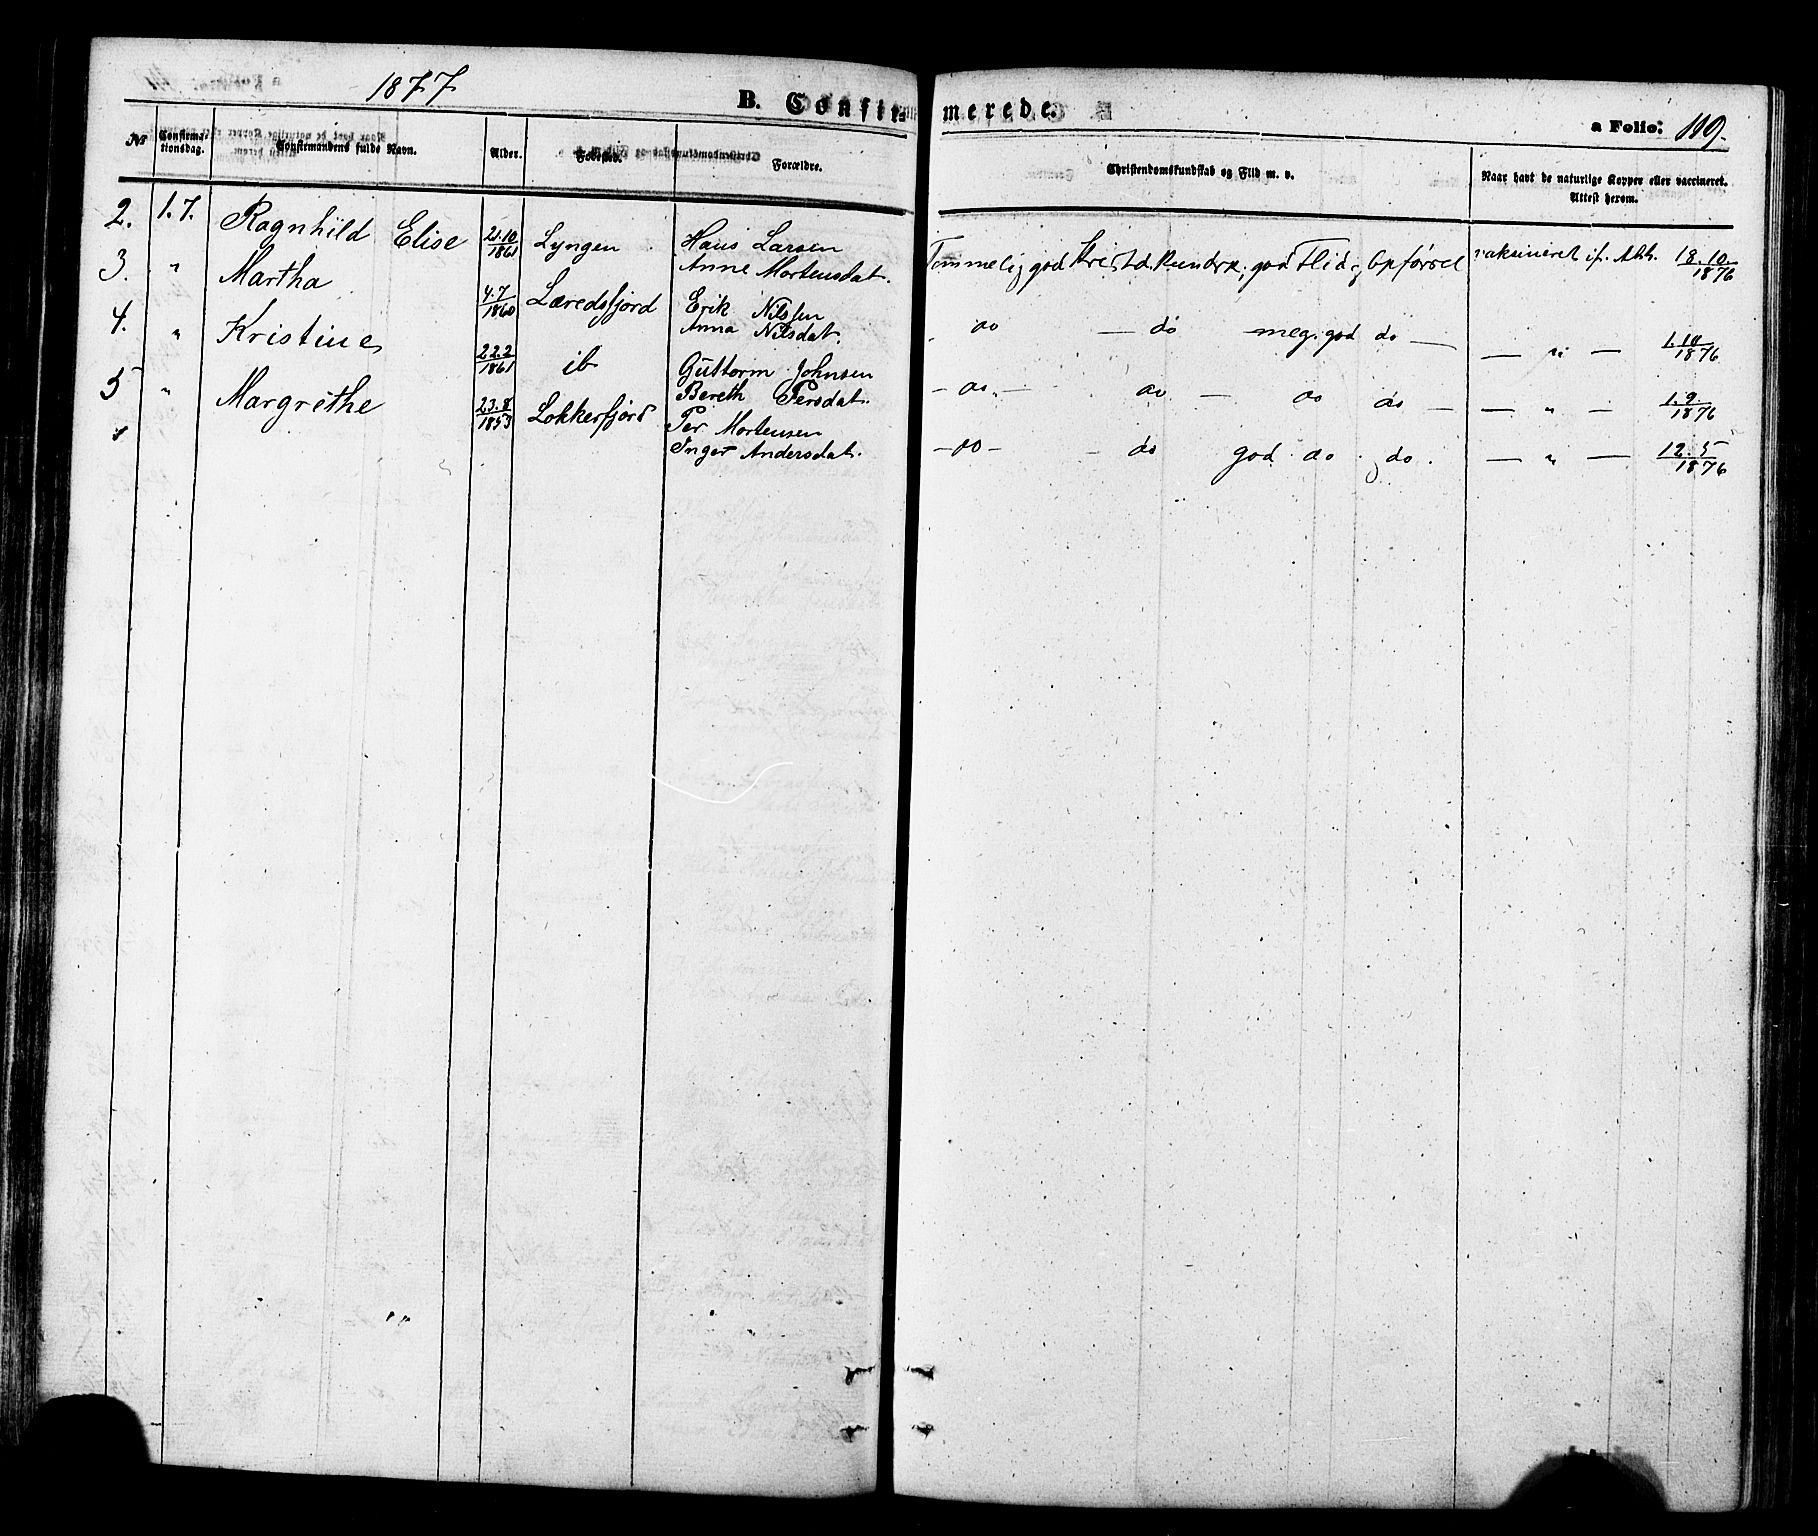 1877
B. Confirmerede.
a Folio: 119.
№ Confirmationsdag. Confirmandens fulde Navn. Alder. Fødested. Forældre. Christendomskundskab og Flid m. v. Naar havt de naturlige Kopper eller vaccineret. Attest herom.
2. 1.7. Ragnhild Elise 21.10 1861 Lyngen Hans Larsen Anne Mortensdat. Temmelig god Kristd. Kundsk., god Flid og Opførsel vakcineret if. Att. 18.10 1876
3. " Martha 4.7 1860 Læredsfjord Erik Nilssen Anna Nilsdat. do — do meg. god do — — " — 1.10 1876
4. " Kristine 22.2 1861 ib Guttorm Johnsen Bereth Persdat. — do — do — do do — — " — 1.9. 1876
5 " Margrethe 23.8 1853 Lokkerfjord Per Mortensen Inger Andersdat. — do — — do god do. do. — " — 12.5 1876